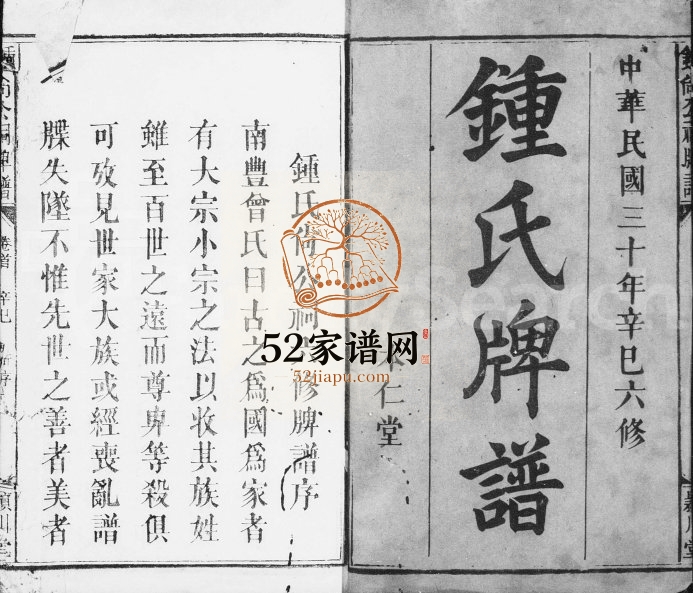 中華民國三十年辛巳六修
鍾氏牌譜
仁堂
鍾氏尚公祠 修牌譜序
南豐曾氏曰古之為國為家者
有大宗小宗之法以收其族姓
雖至百世之遠而尊卑等殺俱
可攷見世家大族或經喪亂譜
牒失墜不惟先世之善者美者
卷首
潁川堂
52家谱网
52jiapu.com